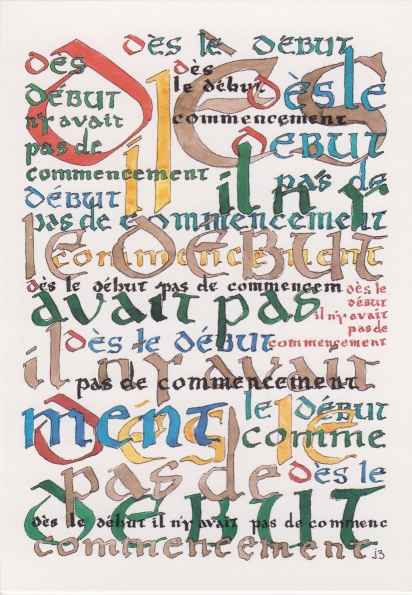 dès le début
Dès
dès
dès
début
le début
dès le
n'y avait
commencement
début
pas de
commencement
il
pas de
début
il n'y
pas de commencement
le début
commencement
dès le début pas de commencem
dès le
début
il n'y avait
pas de
commencement
avait pas
dès le début
il n'y avait
pas de commencement
ment
dès le
le début
comme
pas de
dès le
début
dès le début il n'y avait pas de commenc
commencement
jB